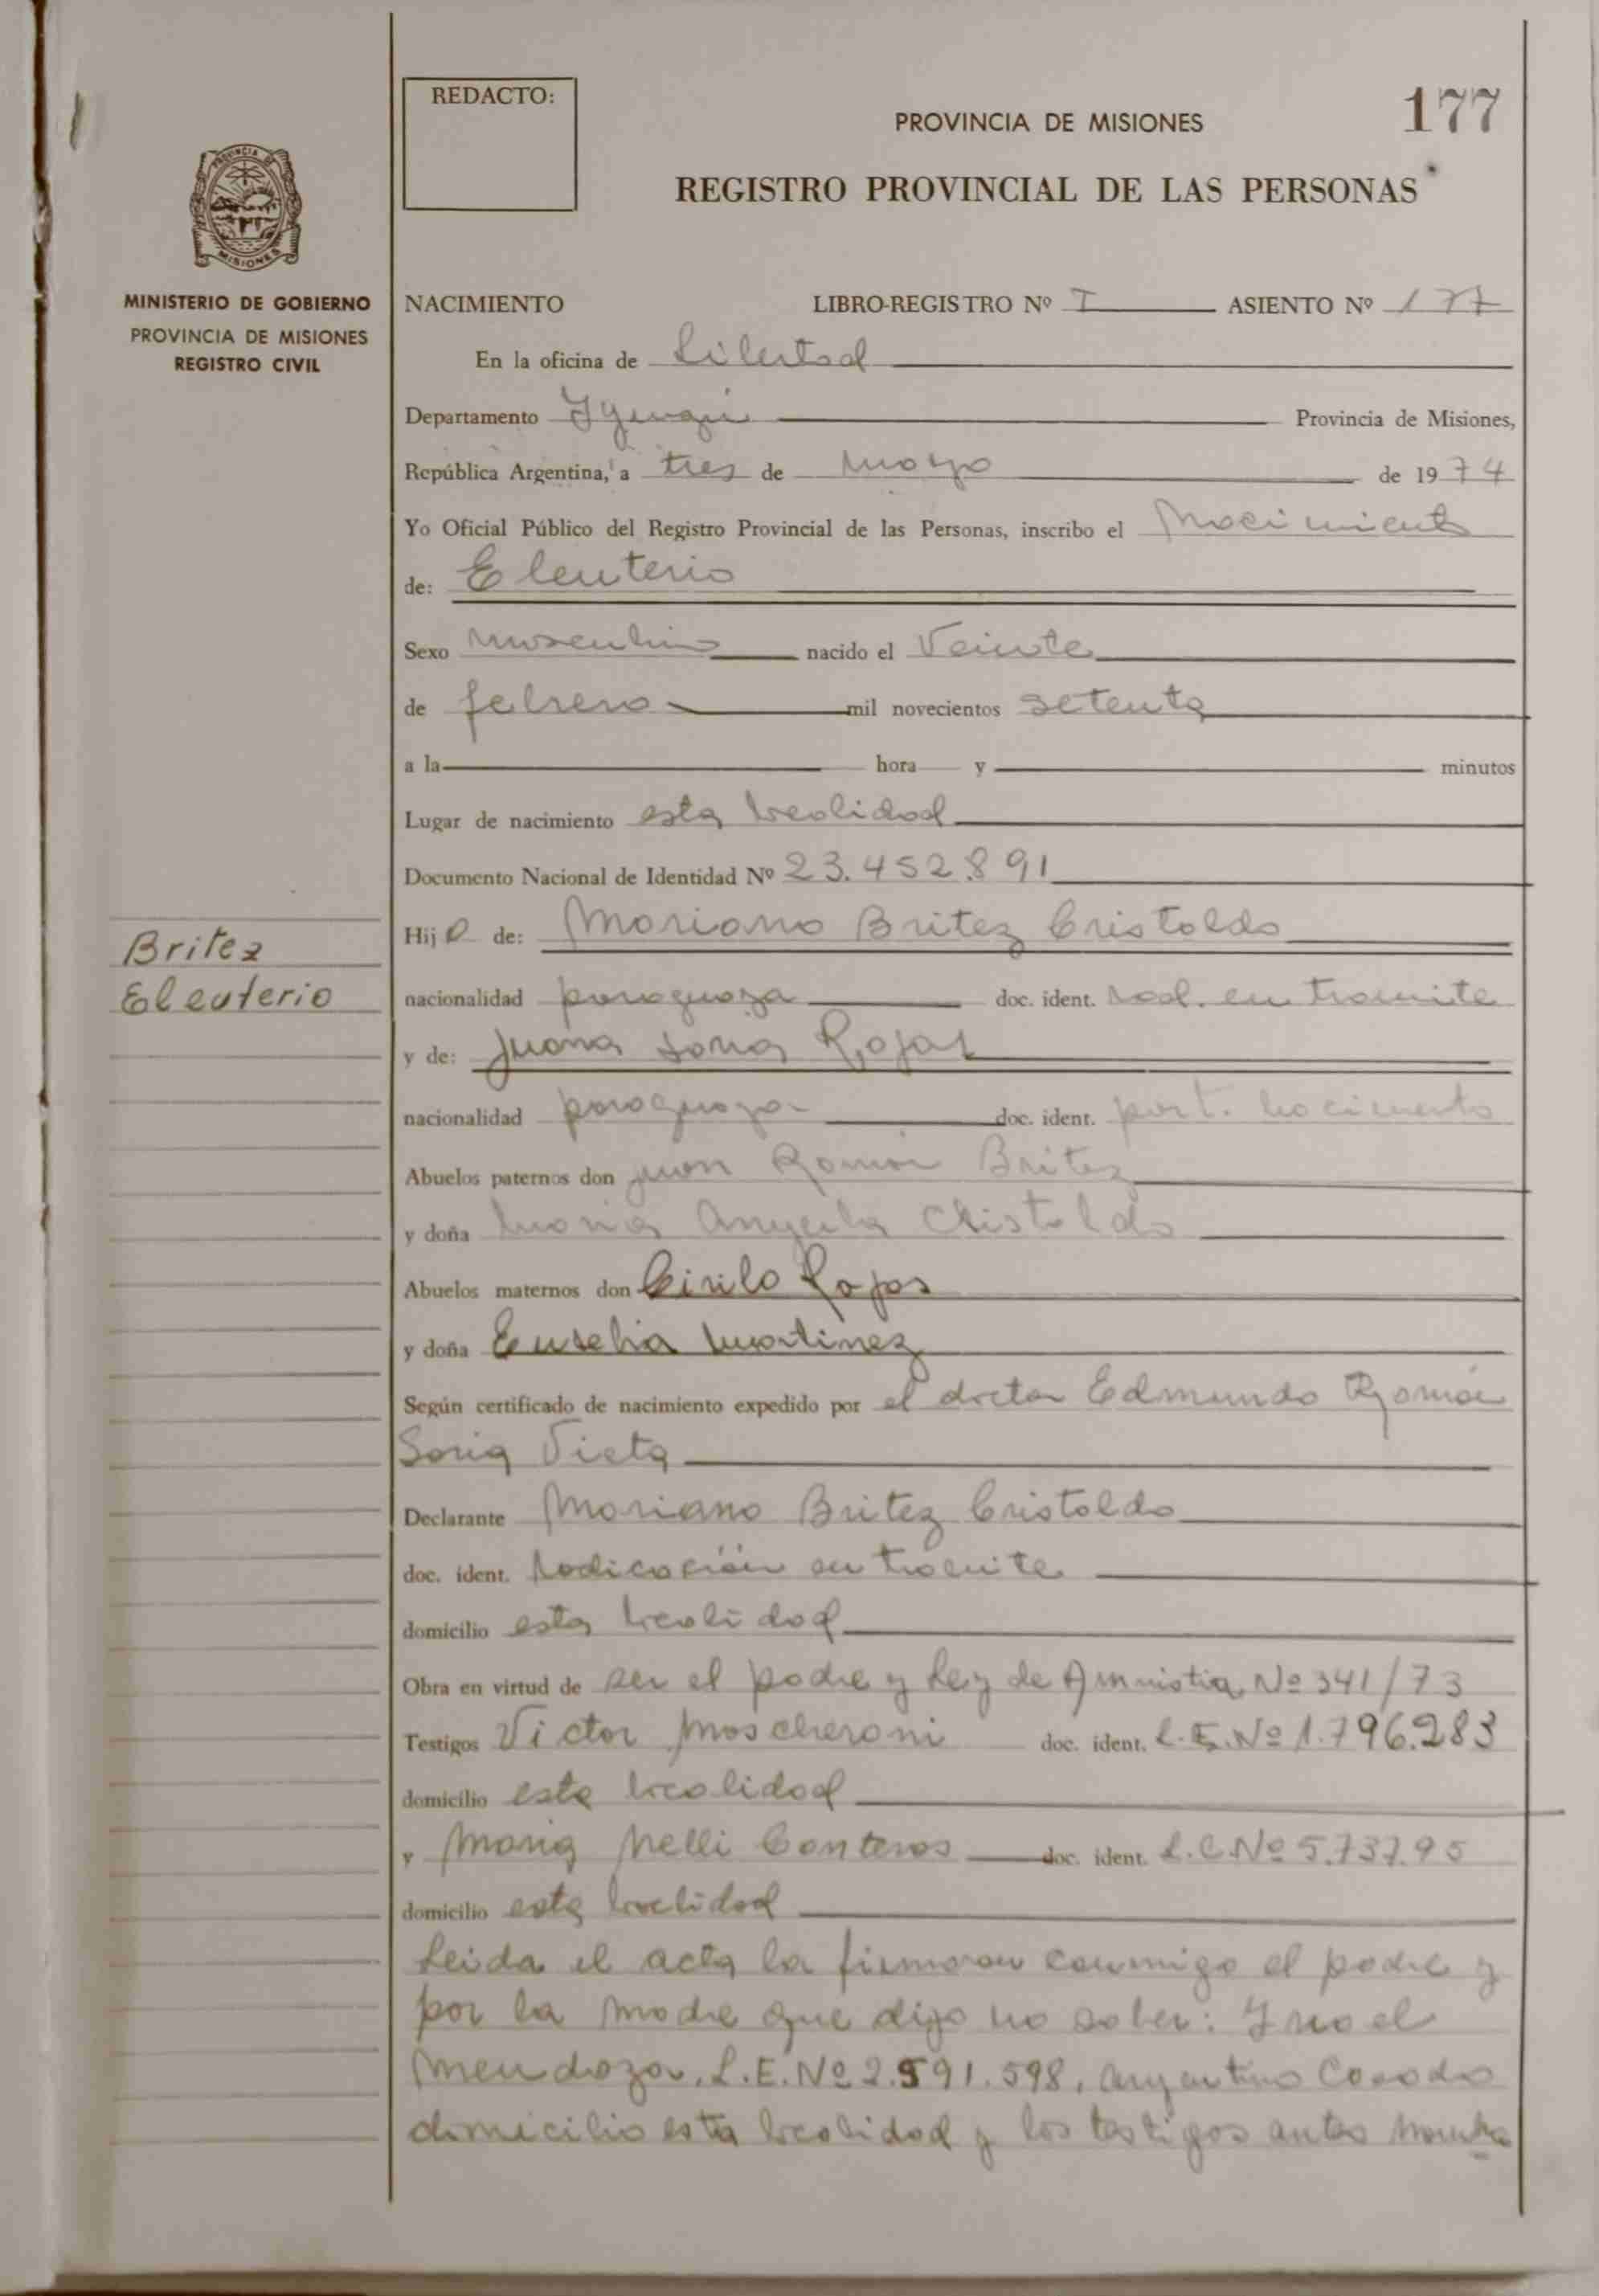 REDACTO:
177
PROVINCIA DE MISIONES
REGISTRO PROVINCIAL DE LAS PERSONAS
PROVINCIA DE
MISIONES
MINISTERIO DE GOBIERNO
PROVINCIA DE MISIONES
REGISTRO CIVIL
NACIMIENTO LIBRO-REGISTRO Nº I ASIENTO Nº 177
En la oficina de Libertad
Departamento Yguazú Provincia de Misiones,
República Argentina, a tres de mayo de 1974
Yo Oficial Público del Registro Provincial de las Personas, inscribo el Nacimiento
de: Eleuterio
Sexo masculino nacido el Veinte
de febrero mil novecientos setenta
a la hora y minutos
Lugar de nacimiento esta localidad
Documento Nacional de Identidad Nº 23.452.891
Britez
Eleuterio
Hijo de: Mariano Britez Cristaldo
nacionalidad paraguaya doc. ident. Rad. en tramite
y de: Juana Rojas
nacionalidad paraguaya doc. ident. part. nacimiento
Abuelos paternos don Juan Ramón Britez
y doña María Angela Christaldo
Abuelos maternos don Cirilo Rojas
y doña Eusebia Martinez
Según certificado de nacimiento expedido por el doctor Edmundo Ramón
Soria Vieta
Declarante Mariano Britez Cristaldo
doc. ident. Radicación en tramite
domicilio esta localidad
Obra en virtud de ser el padre y Ley de Amnistia Nº 341/73
Testigos Victor Moscheroni doc. ident. L.E. Nº 1.796.283
domicilio esta localidad
y Maria Nelli Conteros doc. ident. L.C. Nº 5.737.95
domicilio esta localidad
Leida el acta la firmaron conmigo el padre y
por la madre que dijo no saber: Ynoel
Mendoza, L.E. Nº 2.591.598, argentino Casado
domicilio esta localidad y los testigos antes nombra